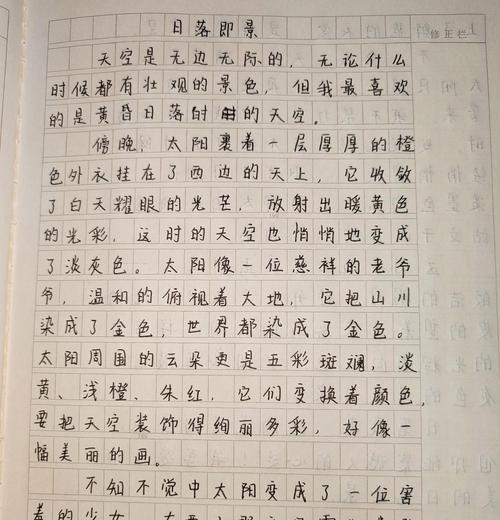 日落即景
修正栏
天空是无边无际的，无论什么
时候都有壮观的景色，但我最喜欢
的是黄昏日落时的天空。
傍晚，太阳裹着一层厚厚的橙
色外衣挂在了西边的天上，它收敛
了白天耀眼的光芒，放射出暖黄色
的光彩，这时的天空也悄悄地变成
了淡灰色。太阳像一位慈祥的老爷
爷，温和的俯视着大地，它把山川
染成了金色，世界都染成了金色。
太阳周围的云朵更是五彩斑斓，淡
黄、浅橙、朱红，它们变换着颜色，
要把天空装饰得绚丽多彩，好像一
幅美丽的画。
不知不觉中太阳变成了一位害
着的少女，